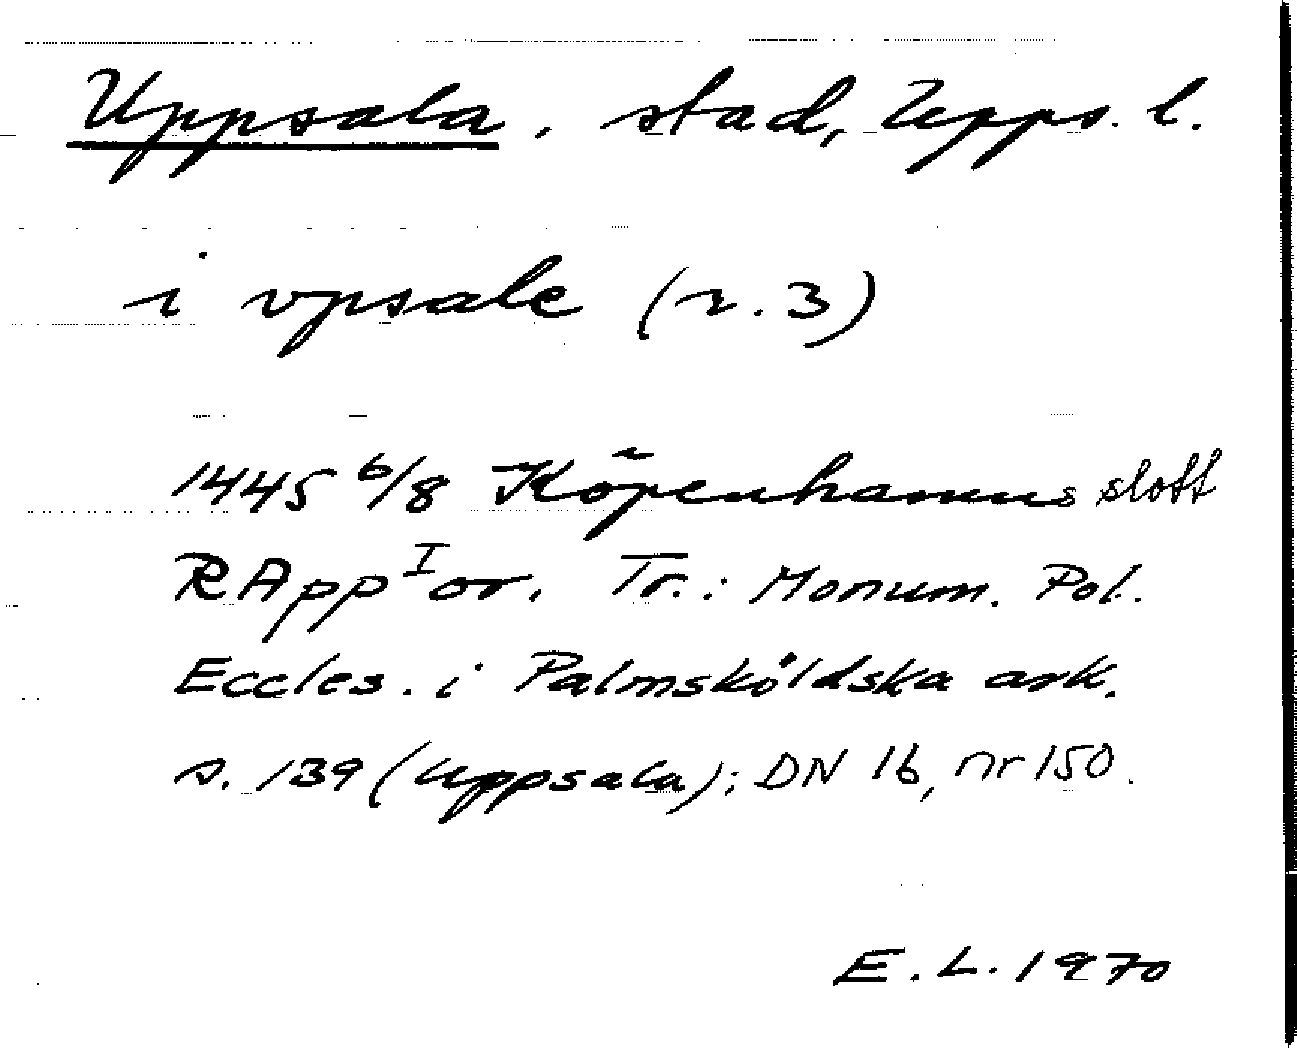 Uppsala, stad, Upps. l.
i vpsale (r. 3)
1445 6/8 Köpenhamns slott
RApp I or. Tr.: Monum. Pol.
Eccles. i Palmsköldska ark.
s. 139 (Uppsala); DN 16, nr 150.
E. L. 1970